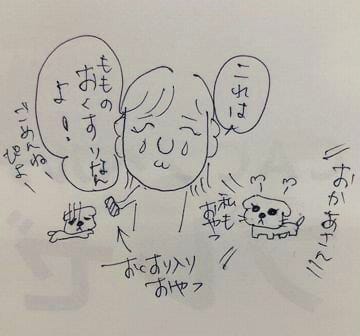 これは
ももの
おくすりなん
よ!
ごめんね!
おかあさん
私も
おやつ
おくすり入り
おやつ